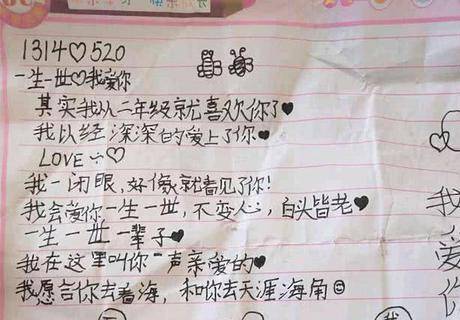 1314♡520
一生一世♡我爱你
其实我从二年级就喜欢你了♥
我以经深深的爱上了你♥
LOVE♡
我一闭眼,好像就看见了你!
我会爱你一生一世,不变心,白头皆老♥
一生一世一辈子♥
我在这里叫你一声亲爱的♥
我愿言你去看海,和你去天涯海角☺
我
爱
你
我